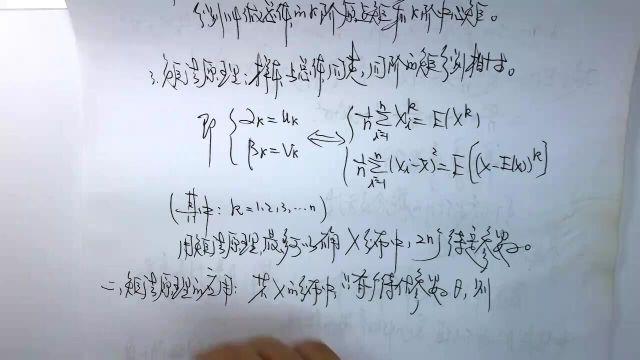 分别叫做总体的k阶原点矩和k阶中心矩。
3. 矩法原理：样本与总体同类,同阶的矩分别相等。
即 { α_k = u_k ⟺ { 1/n ∑_{i=1}^{n} X_i^k = E(X^k)
β_k = V_k 1/n ∑_{i=1}^{n} (x_i - x̄)^2 = E[(X - E(X))^k]
(其中: k = 1, 2, 3, … n)
用矩法原理,最多可以确 X 分布中, 2n个待定参数。
二、矩法原理的应用: 若X的分布中,只有1个待估参数 θ, 则